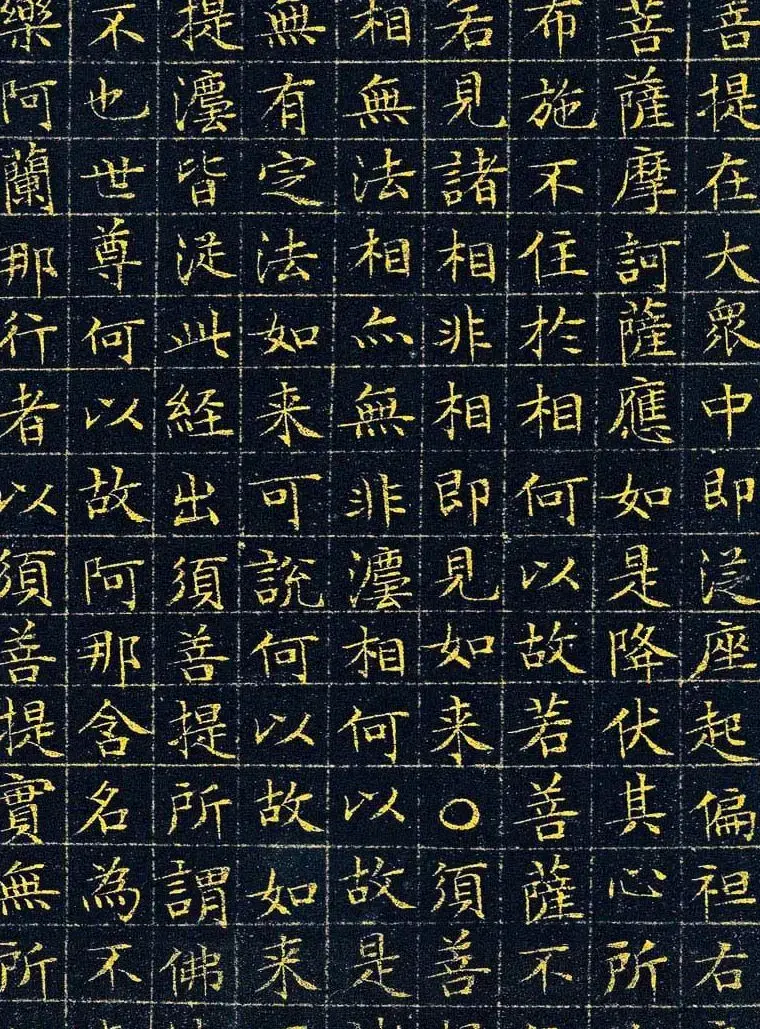 菩提在大眾中即從座起偏袒右
菩薩摩訶薩應如是降伏其心所
布施不住於相何以故若菩薩不
若見諸相非相即見如来○須菩
相無法相亦無非灋相何以故是
無有定法如来可說何以故如来
提灋皆從此経出須菩提所謂佛
不也世尊何以故阿那含名為不
樂阿蘭那行者以須菩提實無所